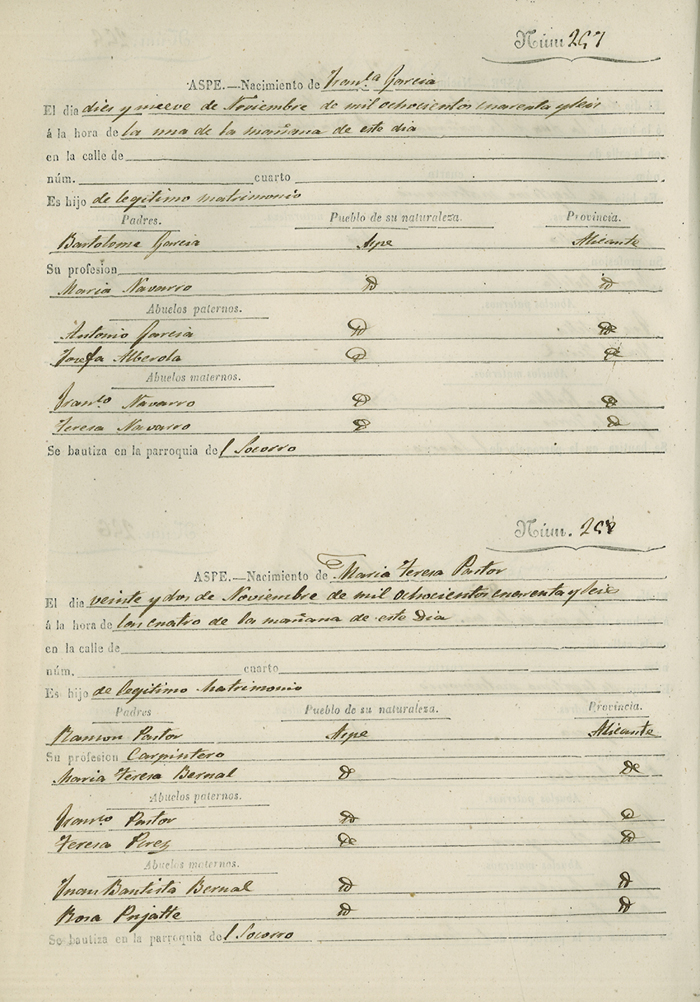 Núm 257
ASPE.—Nacimiento de Franca Garcia
El dia dies y nueve de Noviembre de mil ochocientos cuarenta y seis
á la hora de la una de la mañana de este dia
en la calle de
núm. cuarto
Es hijo de legitimo matrimonio
Padres. Pueblo de su naturaleza. Provincia.
Bartolome Garcia Aspe Alicante
Su profesion
Maria Navarro D D
Abuelos paternos.
Antonio Garcia D D
Josefa Alberola D D
Abuelos maternos.
Franco Navarro D D
Teresa Navarro D D
Se bautiza en la parroquia del Socorro
Núm. 258
ASPE.—Nacimiento de Maria Teresa Pastor
El dia veinte y dos de Noviembre de mil ochocientos cuarenta y seis
á la hora de las cuatro de la mañana de este Dia
en la calle de
núm. cuarto
Es hijo de legitimo Matrimonio
Padres Pueblo de su naturaleza. Provincia.
Ramon Pastor Aspe Alicante
Su profesion Carpintero
Maria Teresa Bernal D D
Abuelos paternos.
Franco Pastor D D
Teresa Perez D D
Abuelos maternos.
Juan Bautista Bernal D D
Rosa Pujalte D D
Se bautiza en la parroquia del Socorro